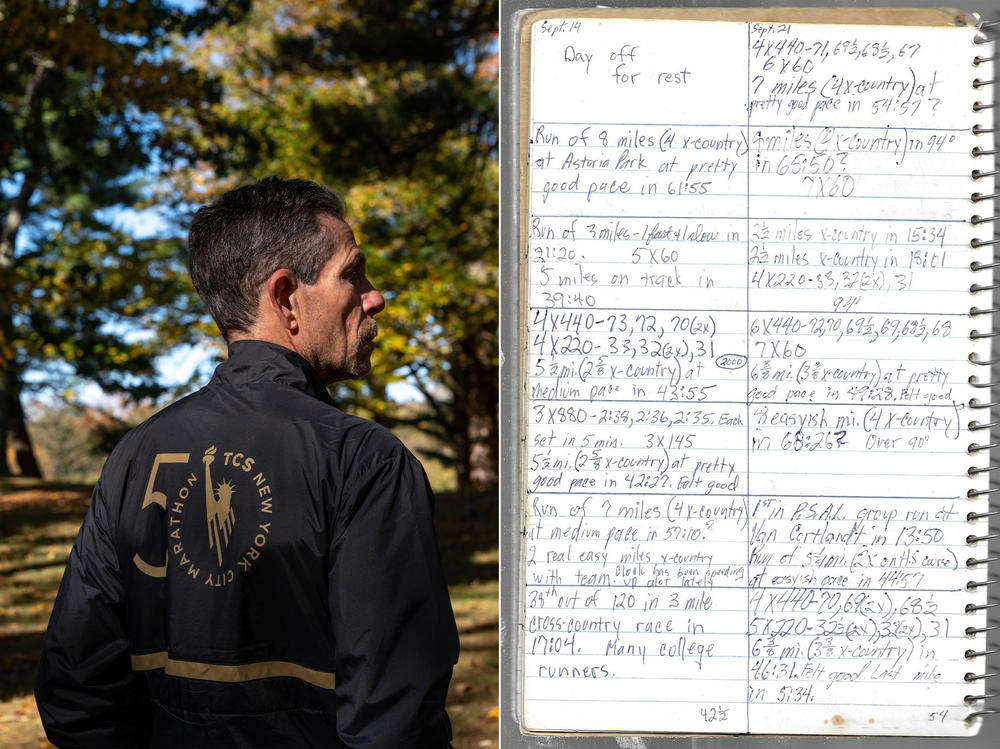 50
TCS NEW YORK CITY MARATHON
Sept. 14
Day off
for rest
Run of 8 miles (4 x-country)
at Astoria Park at pretty
good pace in 61:55
Run of 3 miles-1 fast + 1 slow in
21:20. 5X60
5 miles on track in
39:40
4X440-73, 72, 70(2x)
4X220-33, 32(2x), 31
5½ mi. (2⅝ x-country) at
medium pace in 43:55
3X880-2:38, 2:36, 2:35. Each
set in 5 min. 3X145
5½ mi. (2⅝ x-country) at pretty
good pace in 42:27. Felt good
Run of 7 miles (4 x-country)
at medium pace in 57:10?
2 real easy miles x-country
with team. Clock has been speeding
up alot lately
38th out of 120 in 3 mile
cross-country race in
17:04. Many college
runners.
42½
Sept. 21
4X440-71, 69½, 68½, 67
6X60
7 miles (4x-country) at
pretty good pace in 54:57?
miles (x-country) in 94°
in 65:50?
7X60
2½ miles x-country in 15:34
2½ miles x-country in 18:01
4X220-33, 32(2x), 31
94°
6X440-72, 70, 69½, 69, 68½, 68
7X60
2000
6⅜ mi. (3⅜ x-country) at pretty
good pace in 49:28. Felt good
8 easyish mi. (4 x-country)
in 68:26? Over 90°
1st in P.S.A.L. group run at
Van Cortlandt in 13:50
Run of 5¼ mi. (2x on H.S. course)
at easyish pace in 44:57
4X440-70, 69(2x), 68½
5X220-32½(2x), 32(2x), 31
6⅜ mi. (3⅜ x-country) in
46:31. Felt good. Last mile
in 5:34.
54